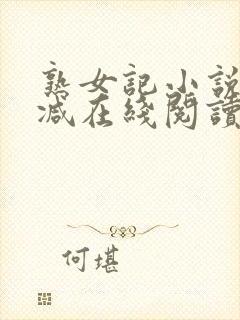 熟女記小説
减在綫閱讀
何堪